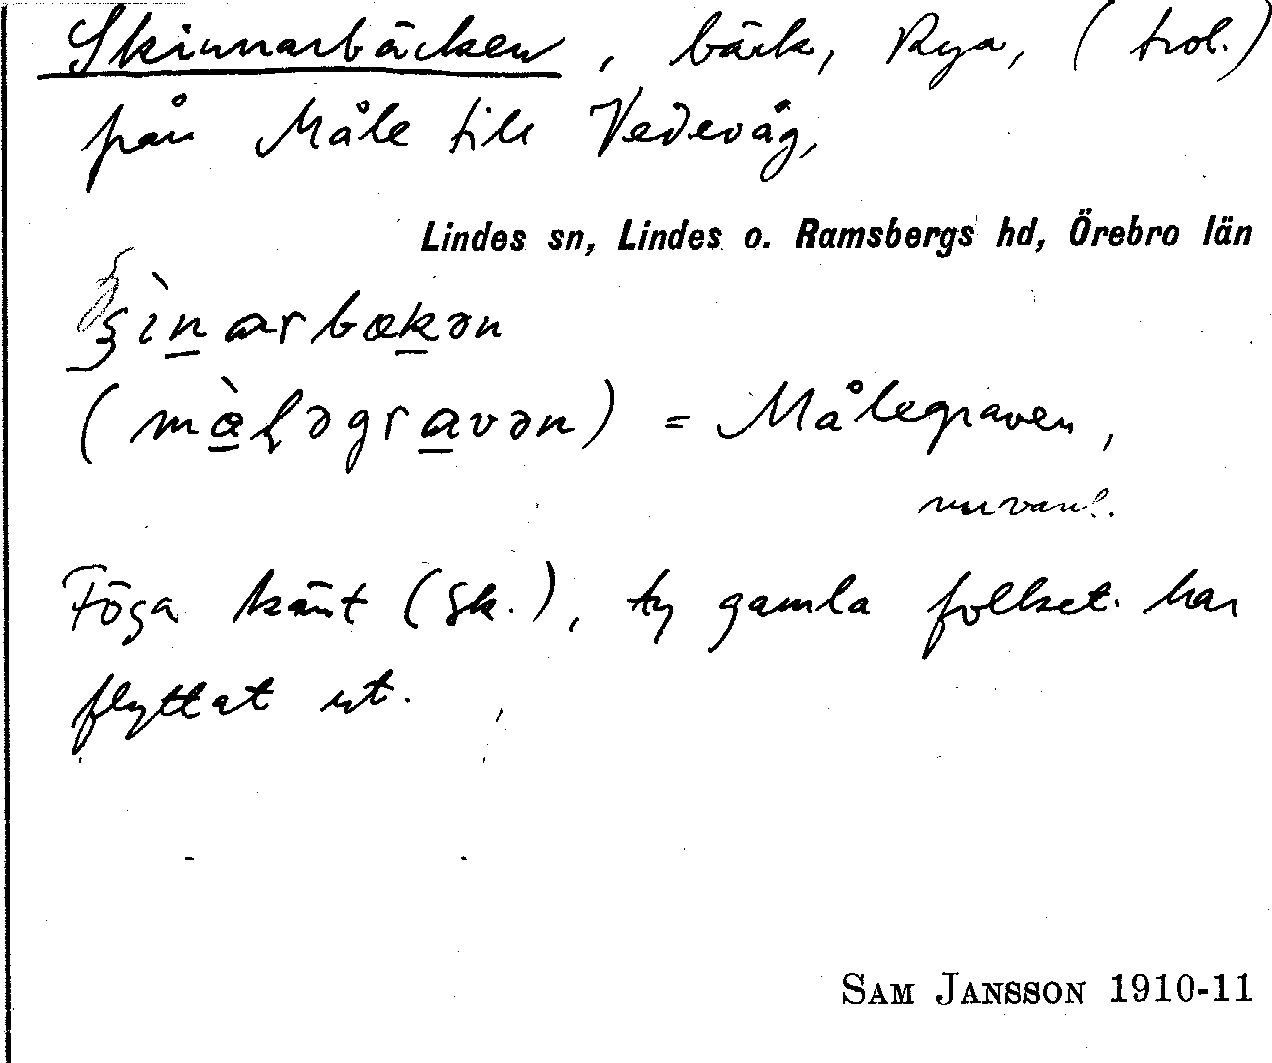 Skinnarbäcken, bäck, Rya, (trol.)
från Måle till Vedevåg,
Lindes sn, Lindes o. Ramsbergs hd, Örebro län
ʂìnarbækən
(mæ̀ɭəgravən) = Målegraven,
nu vanl.
Föga känt (Sk.), ty gamla folket har
flyttat ut.
SAM JANSSON 1910-11